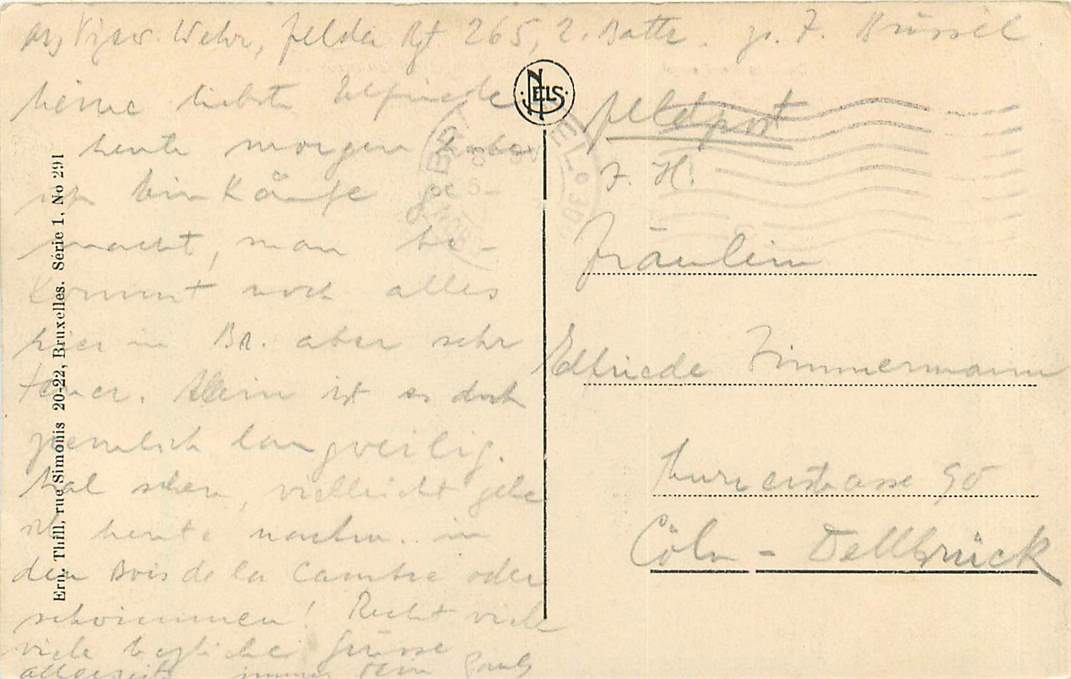 Wehr, felda Rgt 265, 2. Battr. z. Z. Brüssel
Meine liebste Elfriede
heute morgen habe
ich Einkäufe ge
macht, man be-
kommt noch alles
hier in Br. aber sehr
teuer. Allein ist es doch
ziemlich langweilig.
Mal sehen, vielleicht gehe
ich heute nachm. in
den Bois de la Cambre oder
schwimmen! Recht viele
viele herzliche Grüsse
allerseits immer Dein
NELS
Ern. Thill, rue Simonis 20-22, Bruxelles. Série 1, No 291
Feldpost
z. H.
Fräulein
Elfriede Zimmermann
Cöln - Dellbrück